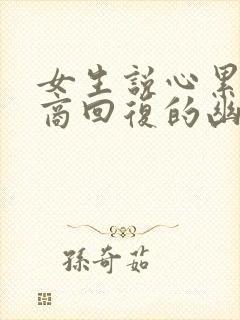 女生説心累
高回復的幽
孫奇茹